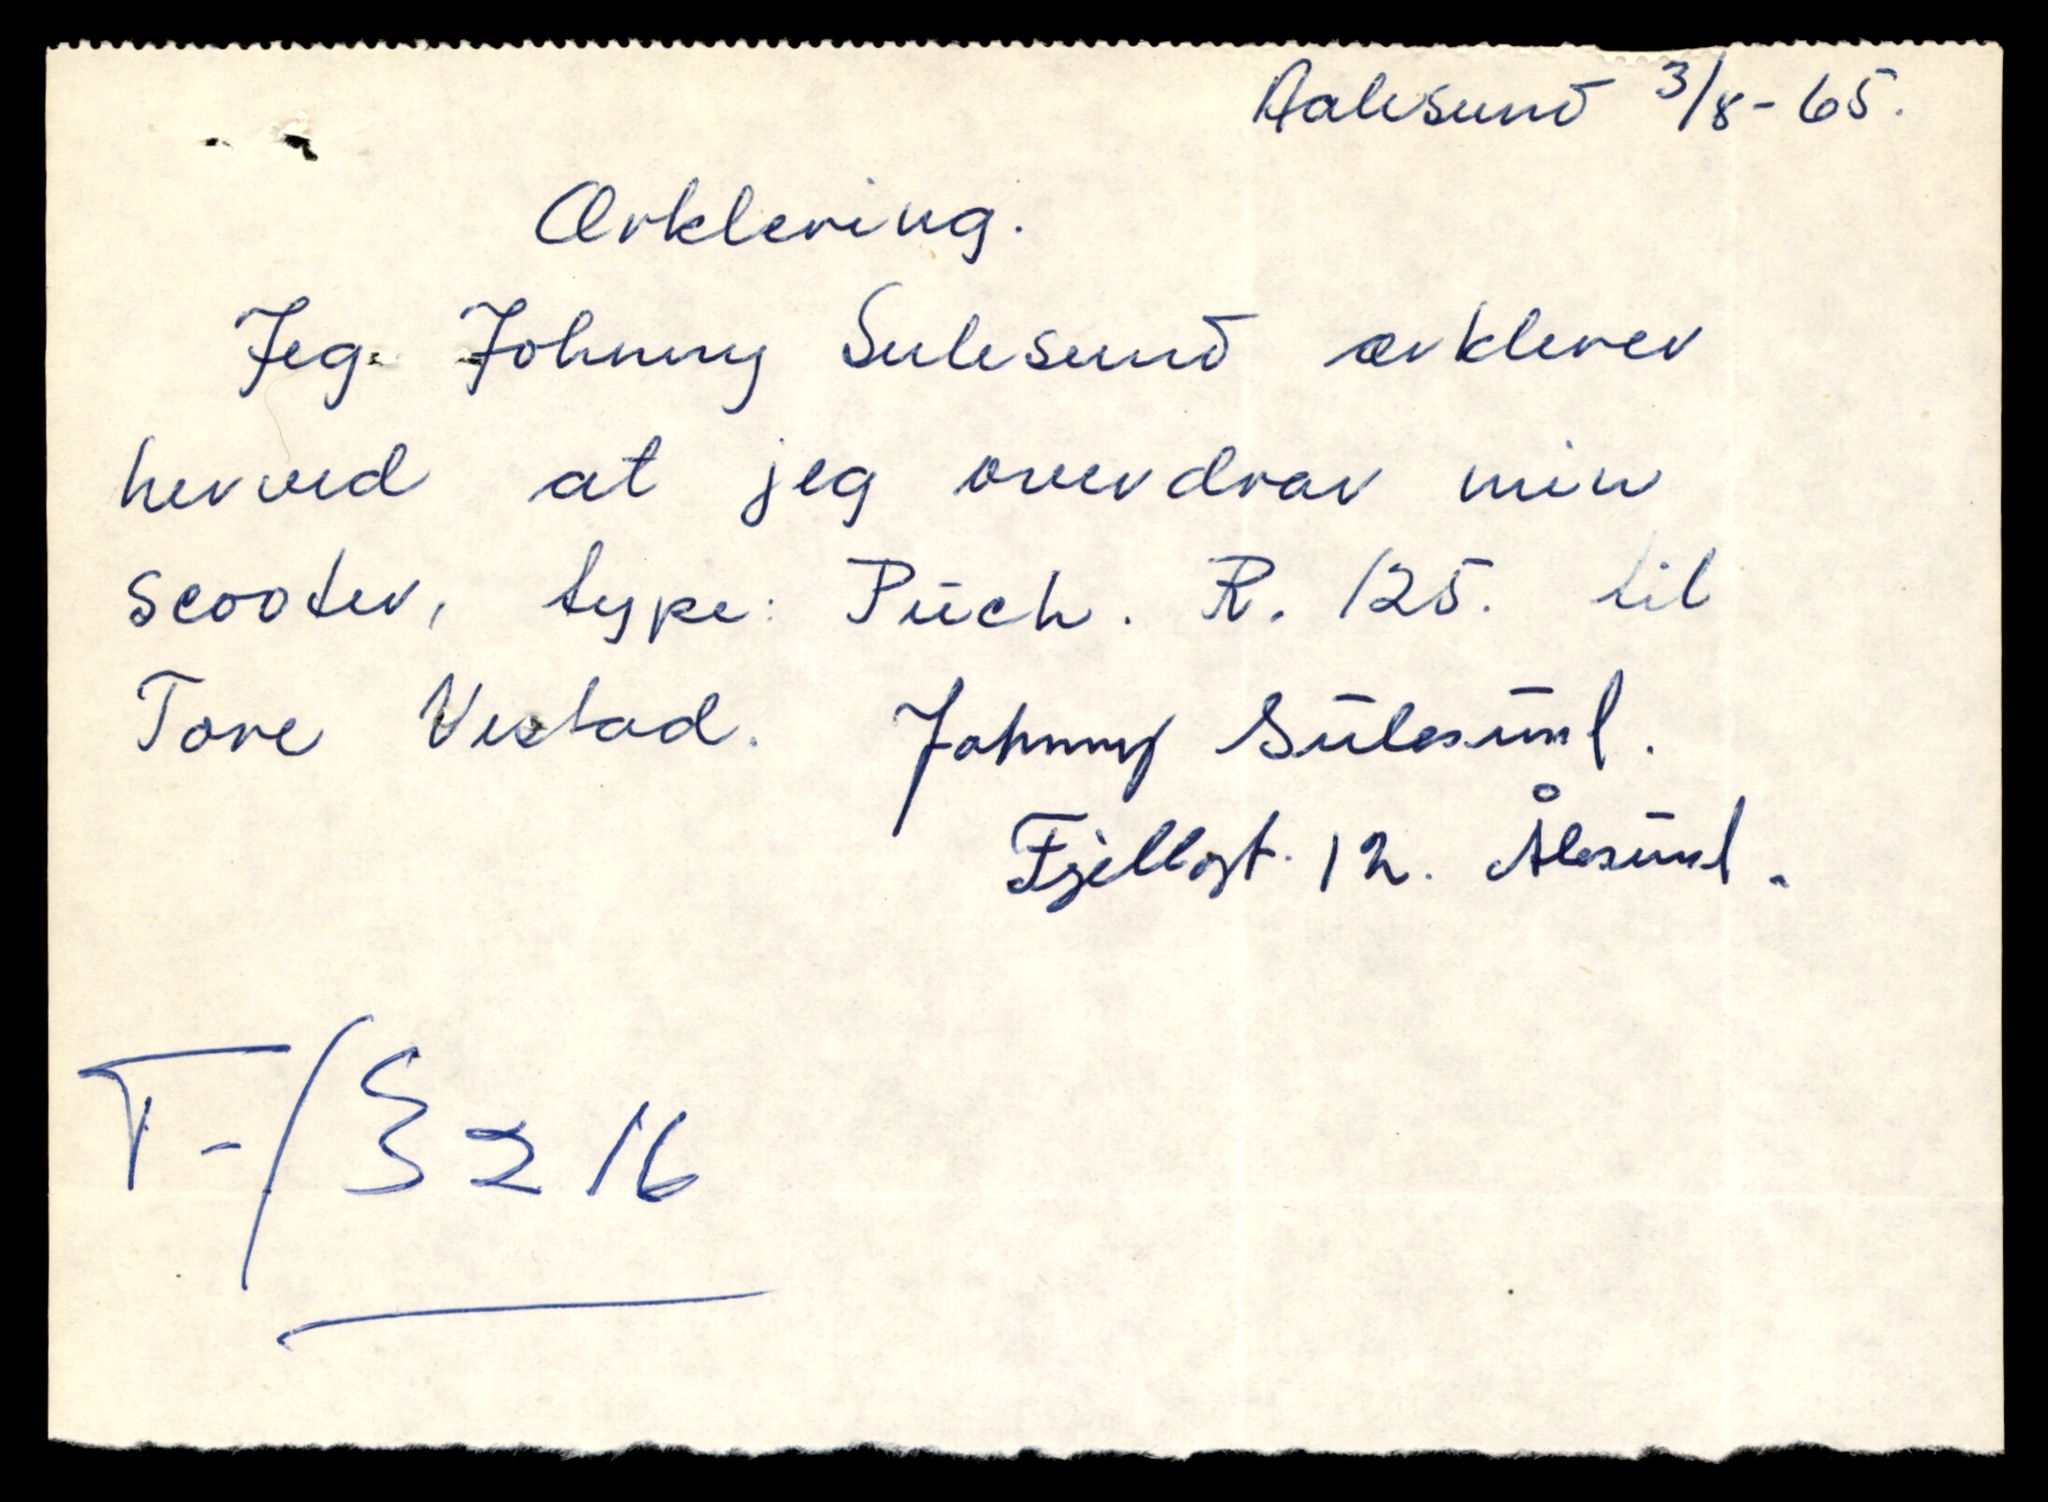 Aalesund 3/8-65.
Ærklering.
Jeg Johnny Sulesund ærklerer
herved at jeg overdrar min
scooter, type: Püch. R. 125. til
Tore Vestad. Johnny Sulesund.
Fjellgt. 12. Ålesund.
T-13216